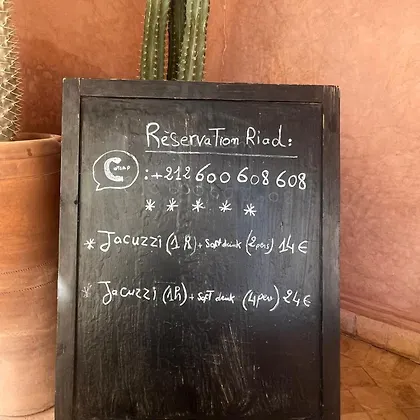 Rèservation Riad:
: +212 600 608 608
* * * * *
* Jacuzzi (1 h) + soft drink (2 pers) 14 €
* Jacuzzi (1h) + soft drink (4 pers) 24 €